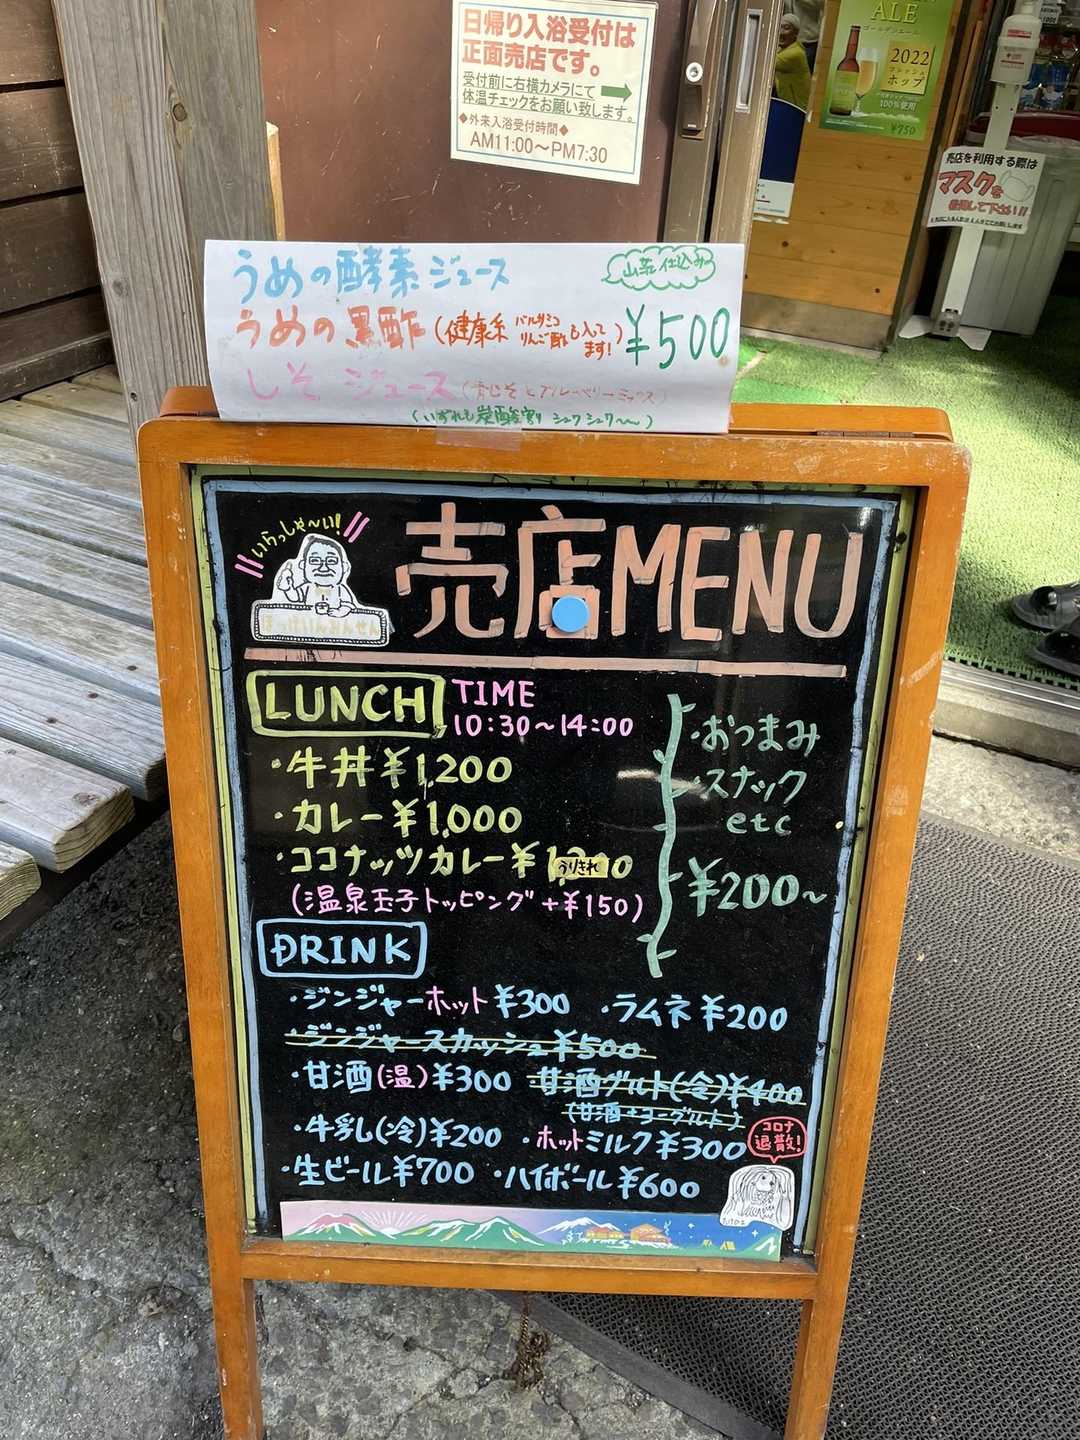 日帰り入浴受付は
正面売店です。
受付前に右横カメラにて
体温チェックをお願い致します。
◆外来入浴受付時間◆
AM11:00～PM7:30
ALE
2022
フレッシュ
ホップ
100%使用
¥750
売店を利用する際は
マスクを
着用して下さい!!
うめの酵素ジュース
山荘仕込み
うめの黒酢(健康系 バルサミコ りんご酢も入って ます!)¥500
しそジュース(青じそとブルーベリーミックス)
(いずれも炭酸割り シュワシュワ～～)
いらっしゃ～い!
ほっけいんおんせん
売店MENU
LUNCH TIME
10:30～14:00
・牛丼¥1,200
・カレー¥1,000
・ココナッツカレー¥1,200
うりきれ
(温泉玉子トッピング+¥150)
・おつまみ
・スナック
etc
¥200～
DRINK
・ジンジャーホット¥300 ・ラムネ¥200
・ジンジャースカッシュ¥500
・甘酒(温)¥300 甘酒グルト(冷)¥400
(甘酒+ヨーグルト)
・牛乳(冷)¥200 ・ホットミルク¥300
・生ビール¥700 ・ハイボール¥600
コロナ
退散!